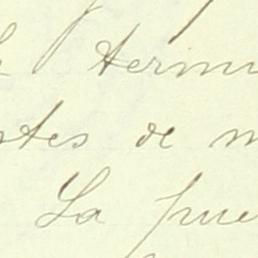 termi
stes de m
La pue